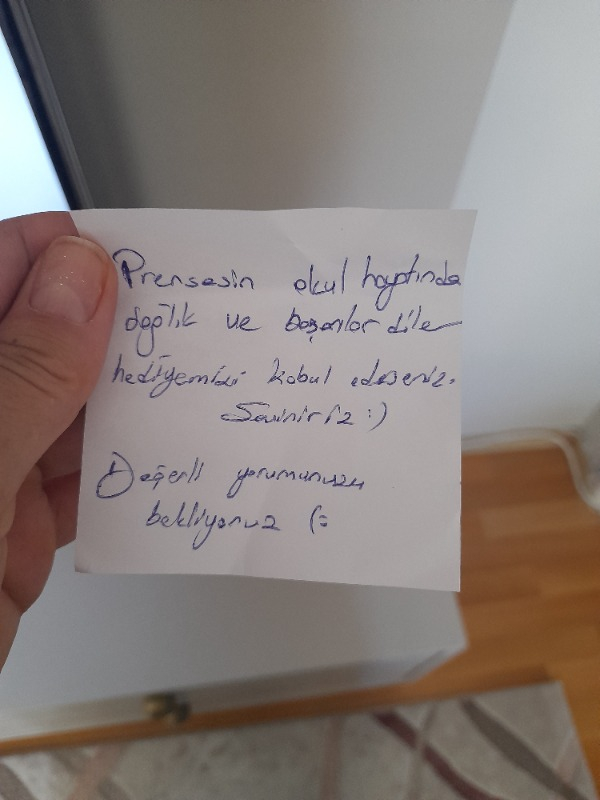 Prensesin okul hayatında
sağlık ve başarılar diler
hediyemizi kabul edeseniz.
Seviniriz :)
Değerli yorumunuzu
bekliyoruz (: